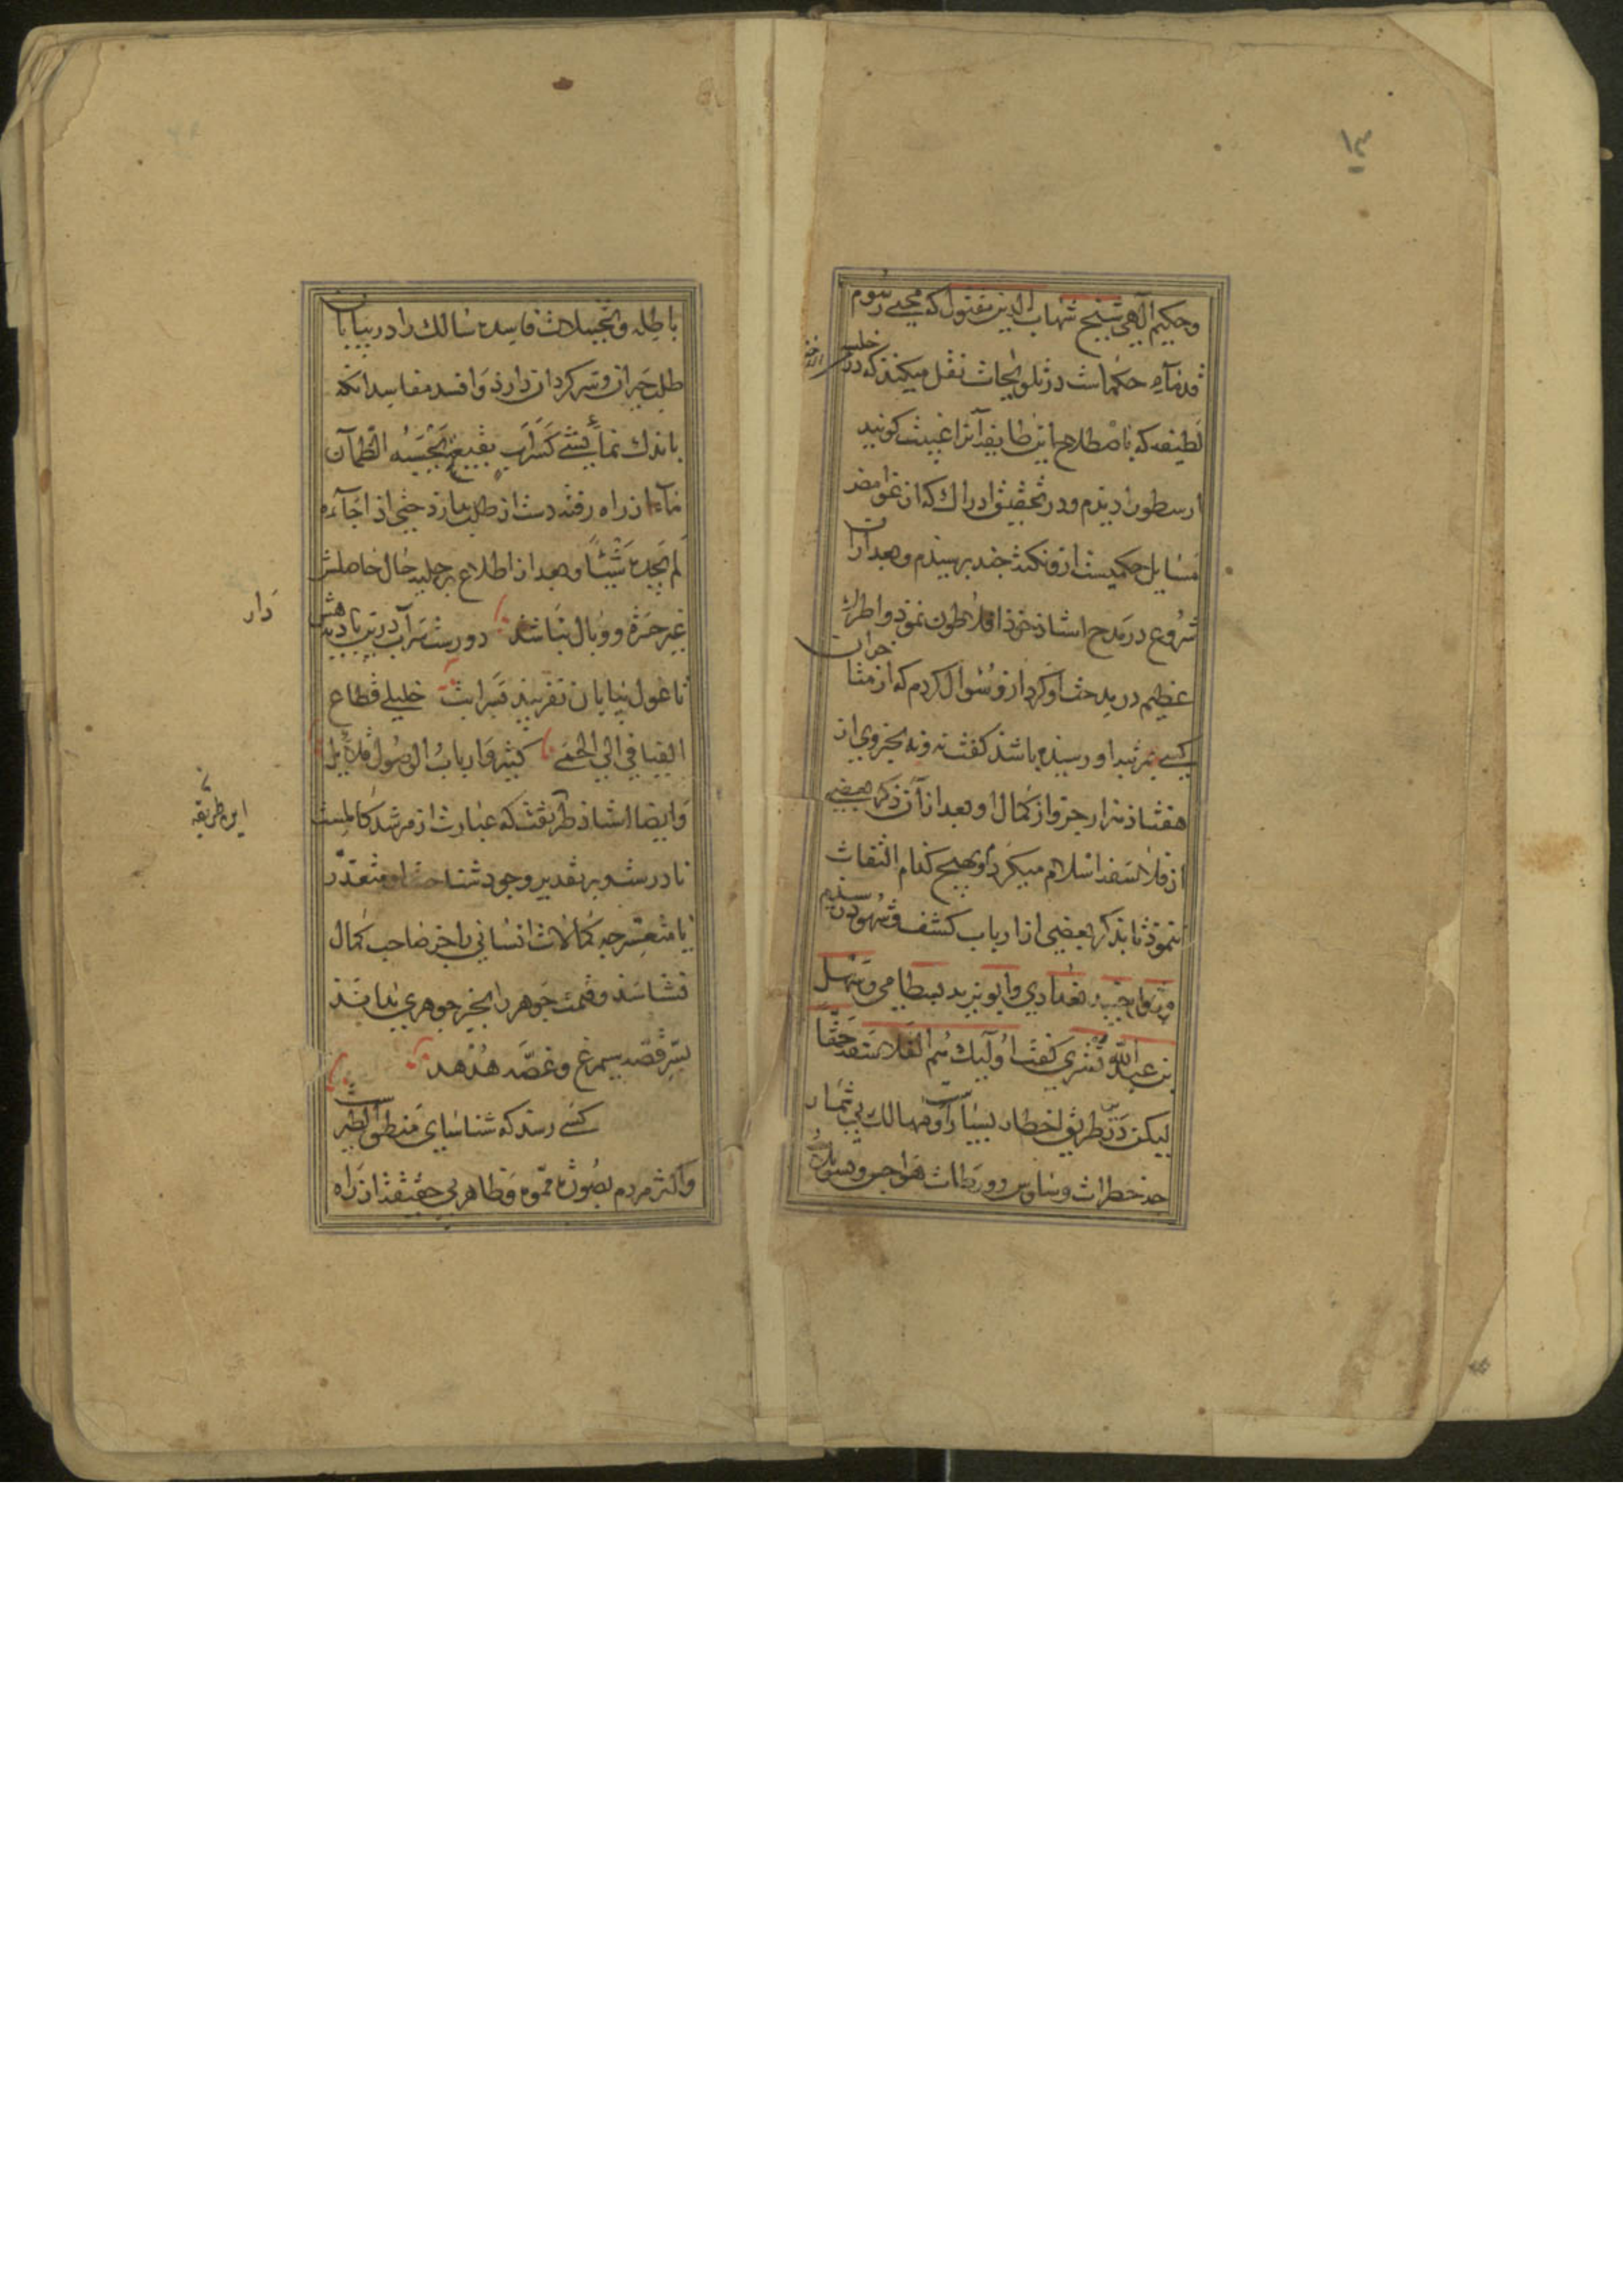 ١٣
وحكيم الٓهى شيخ شهاب الدين مقتول كه محيى رسوم
قدمآء حكماست در تلويحات نقل ميكند كه در خلسهٔ
لطيفه كه باصطلاح اين طايفه آنرا غيبت كويند
ارسطو را ديدم و در تحقيق ادراك كه از غوامض
مسايل حكميست ازو نكتهٔ چند پرسيدم و بعد ازان
شروع در مدح استاذ خوذ افلاطون نموذ و اطراء
عظيم در مدحت او كرد ازو سؤال كردم كه از متاخران
كسى بمرتبهٔ او رسيده باشد كفت نه و نه بجزوى از
هفتاد هزار جزو از كمال او بعد ازان ذكر بعضى
از فلاسفهٔ اسلام ميكرد و بهيچ كدام التفات
ننموذ تا بذكر بعضى از ارباب كشف و شهود رسيدم
جنيد بغدادى و ابو يزيد بسطامى و سهل
بن عبد الله تسترى كفت اولٓيك هم الفلاسفة حقا
ليكن در طريق اخطار بسيارست و مهالك بى شمار
چه خطرات وساوس و ورطات هواجس و تسويلات
باطله و تخييلات فاسده سالك را در بيابان
طلب حيران و سركردان دارذ و افسد مفاسد انكه
باندك نمايشى كَسَرَابٍ بقيعةٍ يَحْسَبُهُ الظمآن
مآءً از راه رفته دست از طلب بازد حتى اذا جآءه
لم يجده شيئًا و بعد از اطلاع بر جليهٔ حال حاصلش
غير حسرة و وبال نباشد دورست سر آب درين باديه هش دار
تا غول بيابان نفريبد بسرابت خليلى قطاع
الفيافى الى الحمى كثير و ارباب الوصول قلايل
و ايضا استاذ طريقت كه عبارت از مرشد كاملست
نادرست و بر تقدير وجود شناخت او متعذر
يا متعسر چه كمالات انسانى را جز صاحب كمال
نشناسد و قيمت جوهر را بجز جوهرى نداند
بسرّ قصّهٔ سيمرغ و غصّهٔ هُدهد
كسى رسد كه شناساى منطق الطيرست
و اكثر مردم بصورة مموّه و ظاهر بى حقيقت از راه
اين طريقه